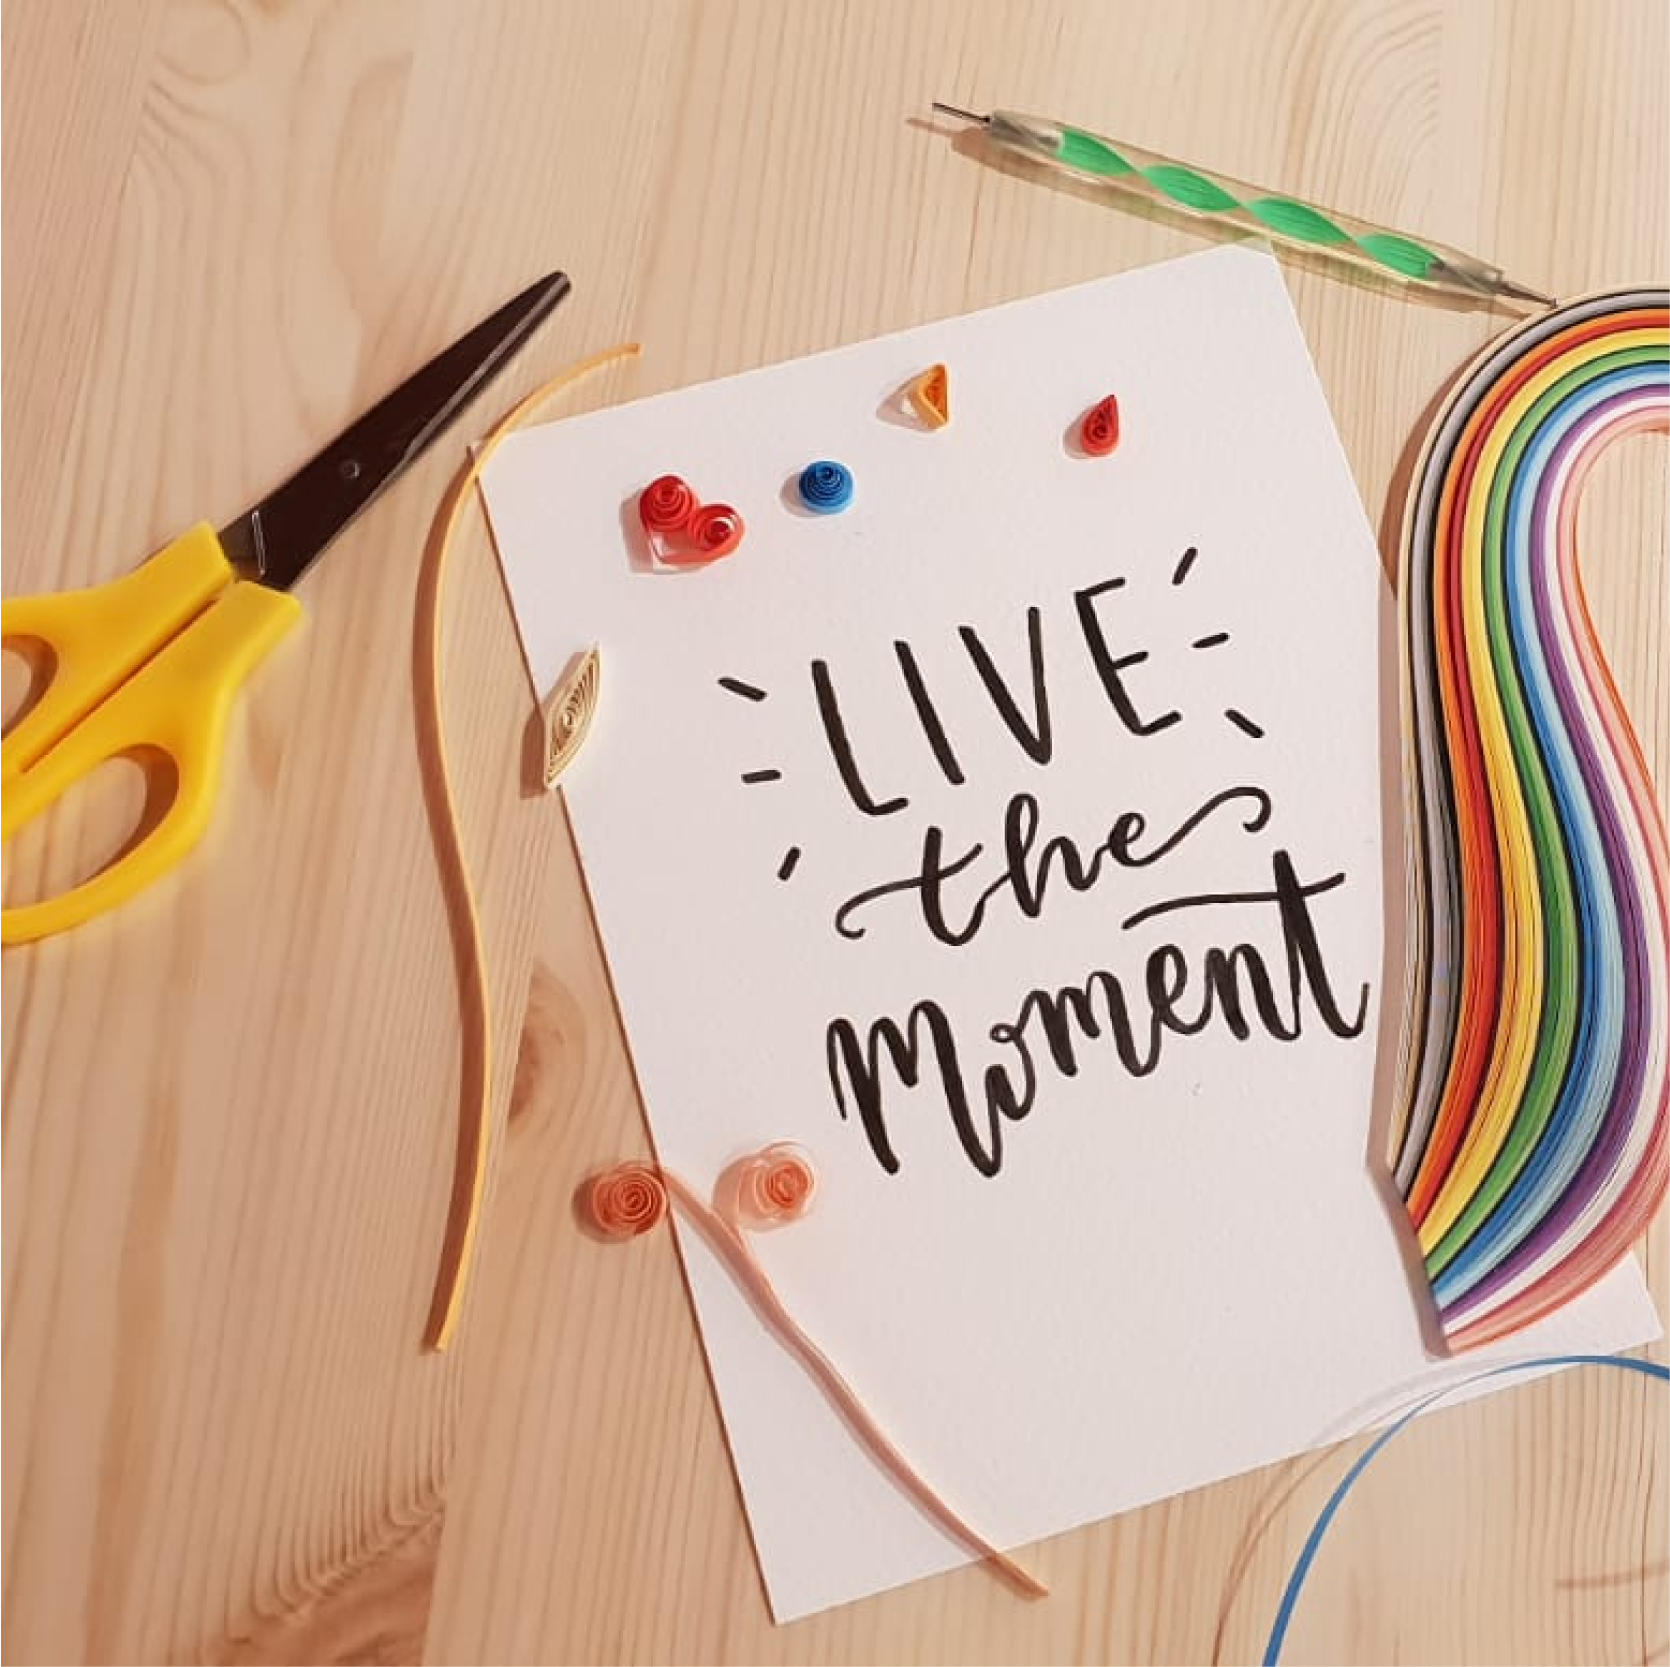 LIVE
the
Moment